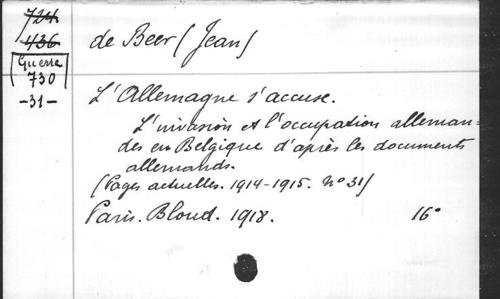 724
436
Guerre
730
-31-
de Beer (Jean)
L'Allemagne s'accuse.
L'invasion et l'occupation alleman-
des en Belgique d'après les documents
allemands.
(Pages actuelles. 1914-1915. No 31)
Paris. Bloud. 1918. 16°